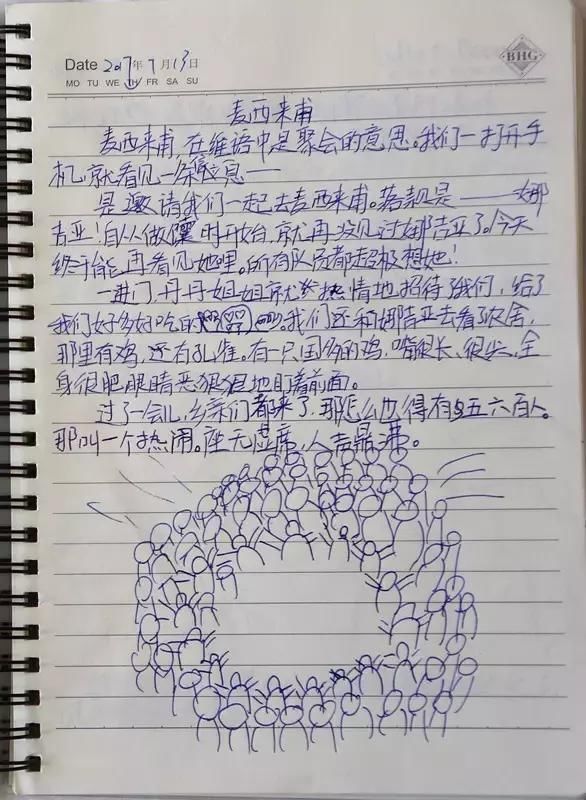 BHG
Date 2017年7月13日
MO TU WE TH FR SA SU
麦西来甫
麦西来甫,在维语中是聚会的意思。我们一打开手
机,就看见一条信息——
是邀请我们一起去麦西来甫。落款是——娜
吉亚!自从做馕时开始,就再没见过娜吉亚了。今天
终于能再看见她哩。所有队员都超级想她!
一进门,丹丹姐姐就热情地招待了我们,给了
我们好多好吃的。我们还和娜吉亚去看了农舍,
那里有鸡,还有孔雀。有一只的鸡,嘴很长、很尖,全
身很肥,眼睛恶狠狠地盯着前面。
过了一会儿,乡亲们都来了,那怎么也得有五六百人。
那叫一个热闹。座无虚席,人声鼎沸。